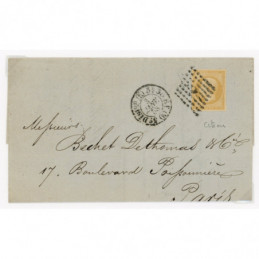 Messieurs
Bechet Dethomas & Cie
17, Boulevard Poissonnière
Paris